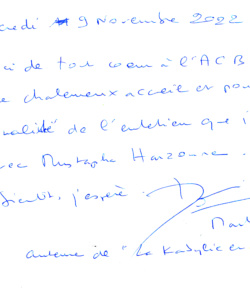 credi 9 Novembre 2022
ci de tout coeur à l'ACB
chaleureux accueil et pou
ualité de l'entretien que j
vec Mustapha Harzoune.
bientôt, j'espère.
Mart
auteure de "La Kabylie en